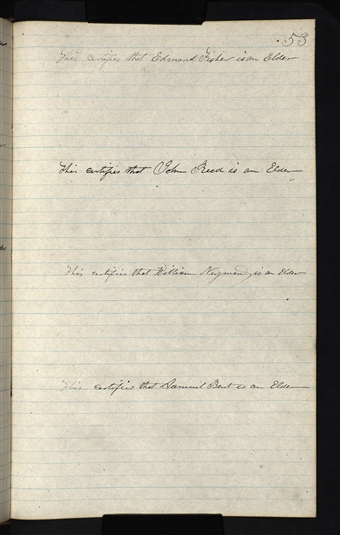 53
This certifies that Edmund Fisher is an Elder
This certifies that John Reed is an Elder
This certifies that William is an Elder
This certifies that Samuel Bent is an Elder